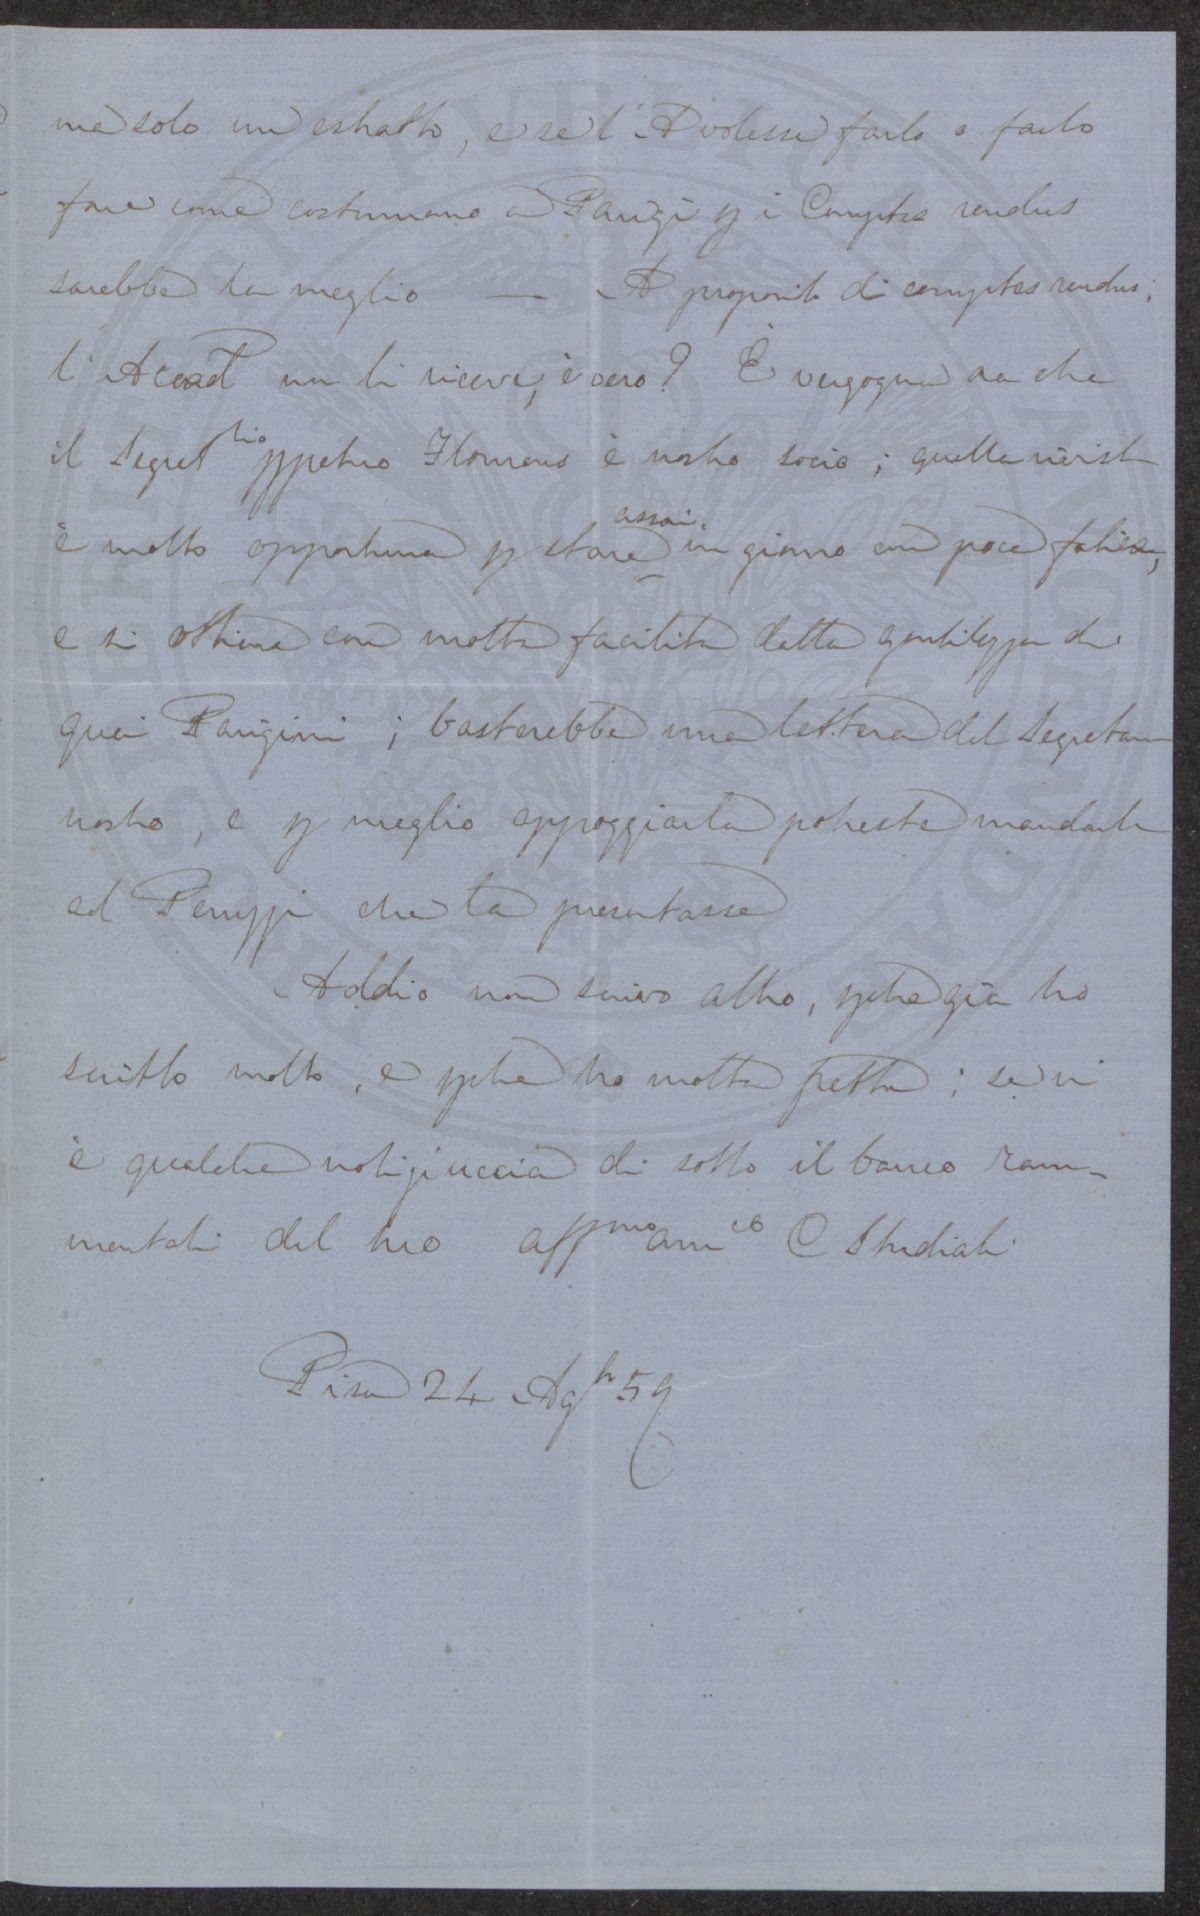 me solo un estratto, e se l'A volesse farlo o farlo
fare come costumano a Parigi p i Comptes rendus
sarebbe la meglio — A proposito di comptes rendus;
l'Accad non li riceve, è vero? È vergogna ora che
il Segret.rio ppetuo Flourens è nostro socio; quella rivista
è molto opportuna p stare assai in giorno con poca fatica,
e si ottiene con molta facilità dalla gentilezza di
quei Parigini; basterebbe una lettera del Segretario
nostro, e p meglio appoggiarla potreste mandarla
al Peruzzi che la presentasse
Addio non scrivo altro, pche già ho
scritto molto, e pche ho molta fretta; se vi
è qualche notiziuccia di sotto il banco ram-
mentati del tuo affmo amico C Studiati
Pisa 24 Agto 59